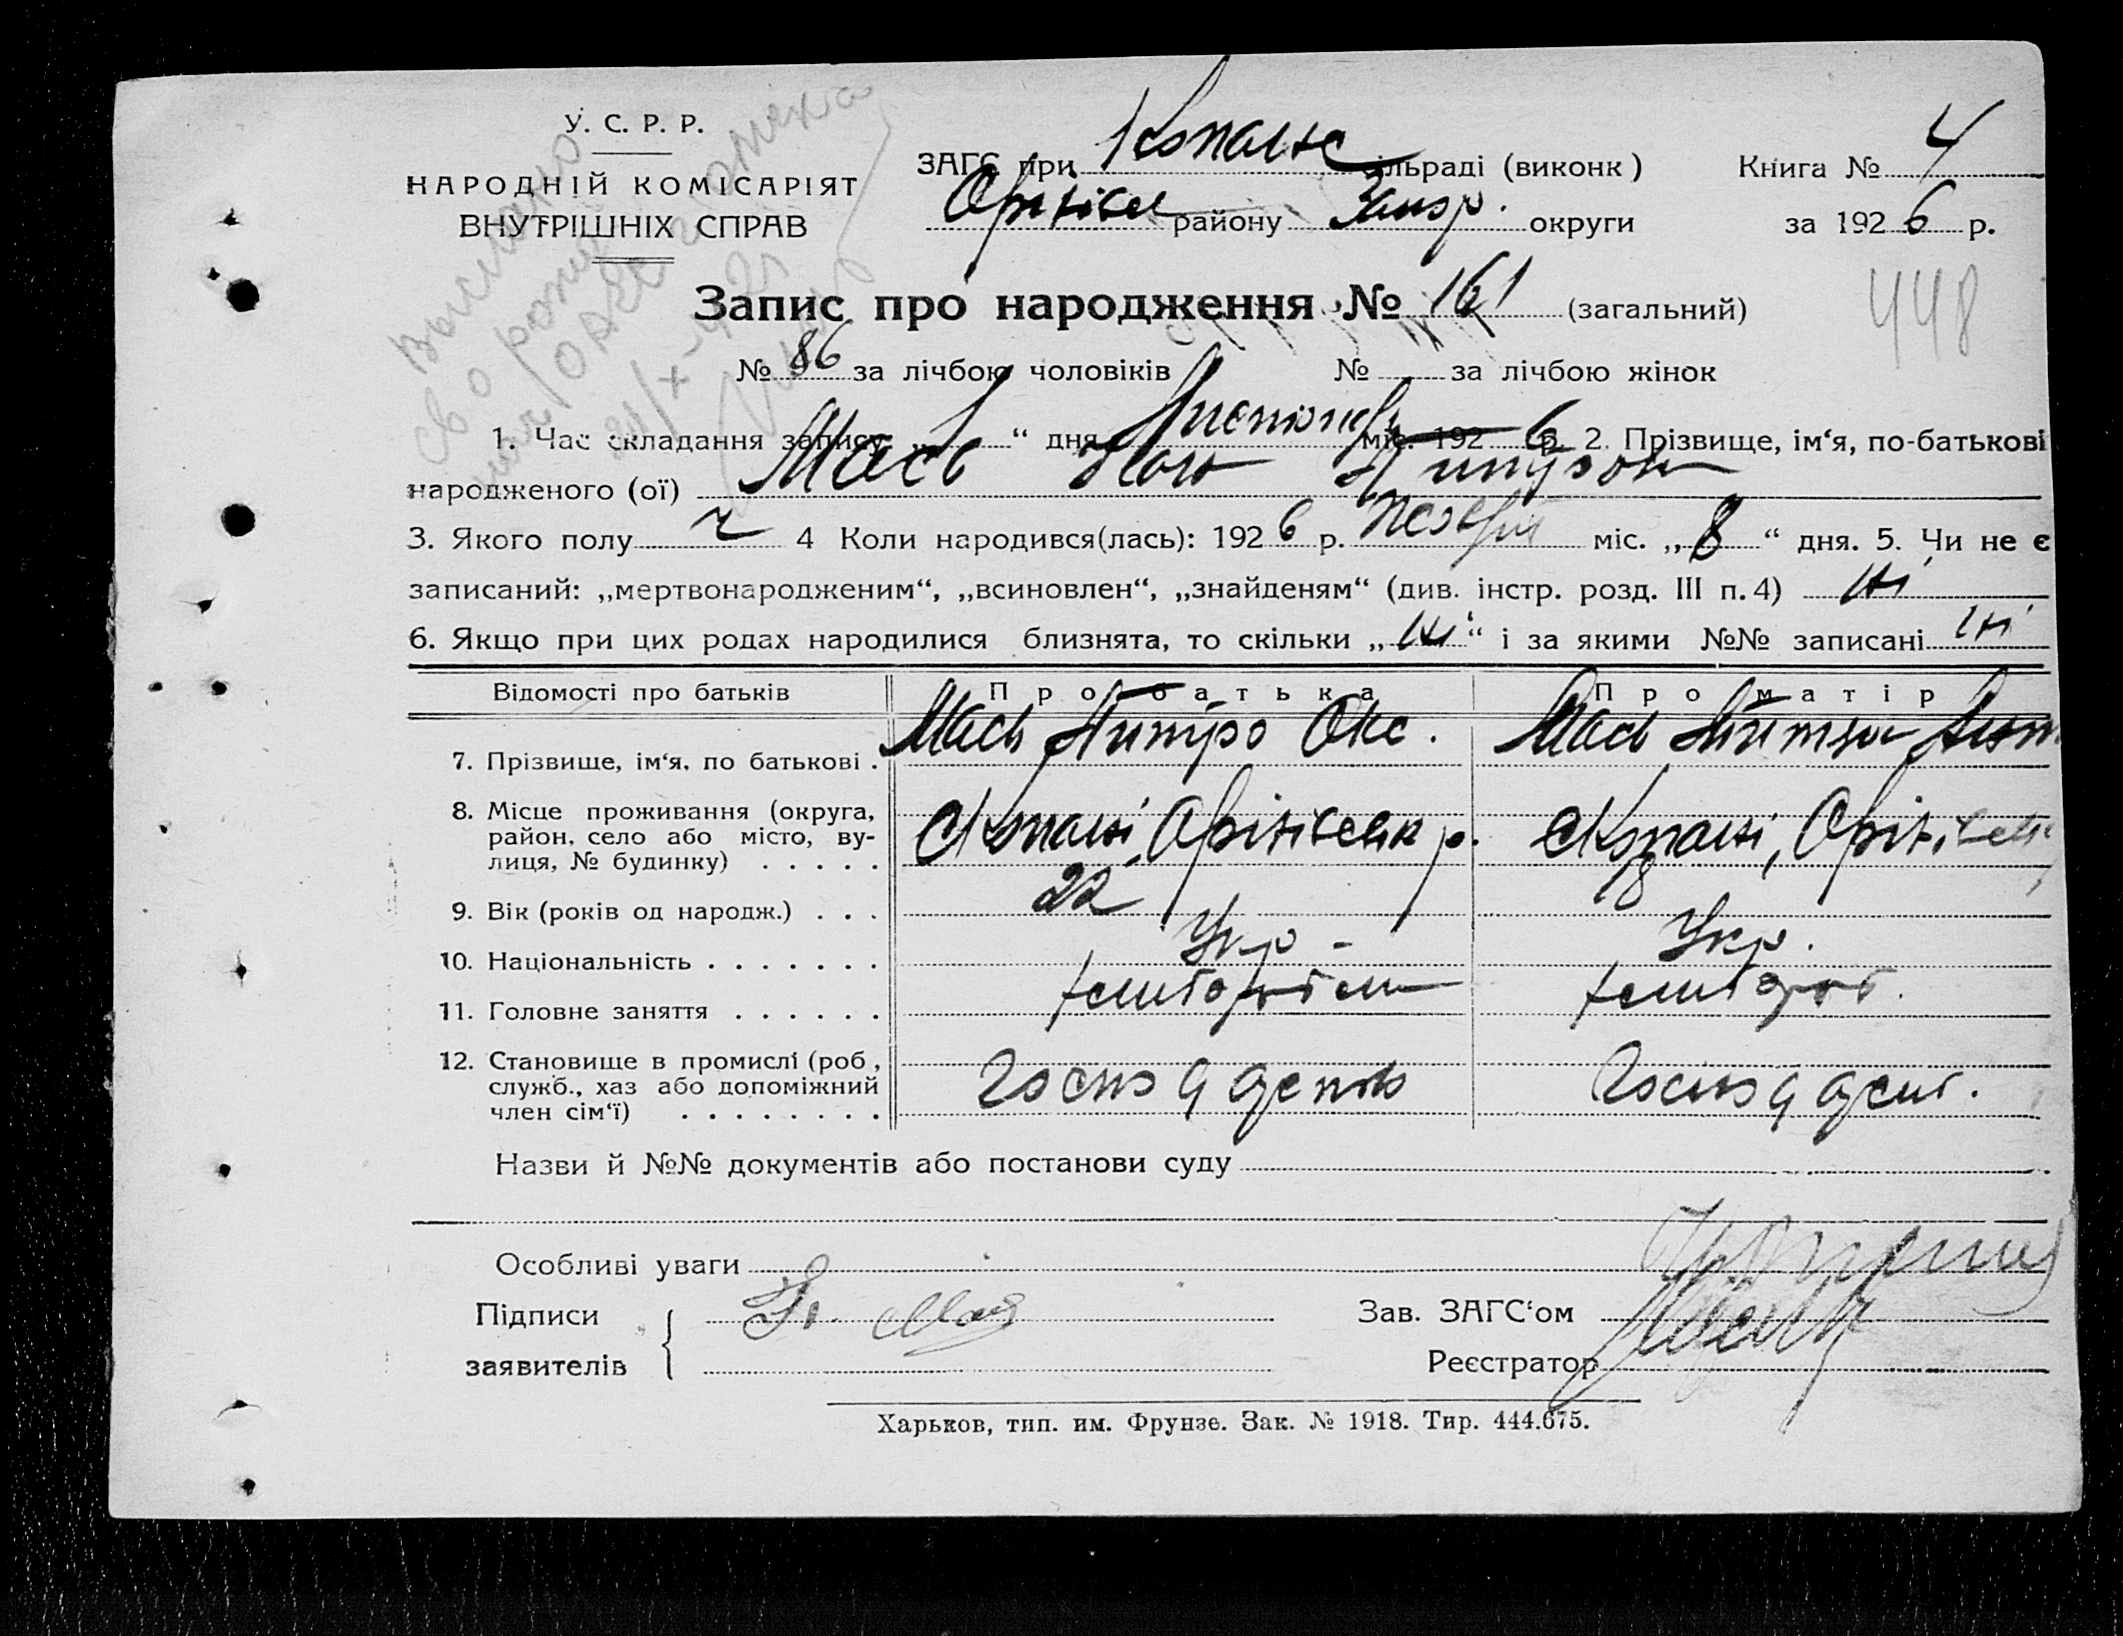 У. С. Р. Р.
НАРОДНІЙ КОМІСАРІЯТ
ВНУТРІШНІХ СПРАВ
ЗАГС при Копане ільраді (виконк)
Оріхівськ району Запор. округи
Книга № 4
за 1926 р.
Запис про народження № 161 (загальний)
448
№ 86 за лічбою чоловіків № за лічбою жінок
1. Час складання запису: „ “ дня Листопада міс. 1926 р. 2. Прізвище, ім‘я, по-батькові
народженого (ої) Мась
3. Якого полу ч 4 Коли народився(лась): 1926 р. міс. „8“ дня. 5. Чи не є
записаний: „мертвонародженим“, „всиновлен“, „знайденям“ (див. інстр. розд. III п. 4) ні
6. Якщо при цих родах народилися близнята, то скільки „ні“ і за якими №№ записані ні
Відомості про батьків Про батька Про матір
7. Прізвище, ім‘я, по батькові . Мась Дмитро Окс. Мась
8. Місце проживання (округа,
район, село або місто, ву-
лиця, № будинку) . . . . . с Копані, Оріхівськ р. с Копані, Оріхівськ
9. Вік (років од народж.) . . . 22 18
10. Національність . . . . . . . Укр - Укр.
11. Головне заняття . . . . . . хлибороб хлибороб.
12. Становище в промислі (роб.,
служб., хаз або допоміжний
член сім‘ї) . . . . . . . .
Назви й №№ документів або постанови суду
Особливі уваги
Підписи
заявителів
Мась
Зав. ЗАГС‘ом
Реєстратор
Харьков, тип. им. Фрунзе. Зак. № 1918. Тир. 444.675.